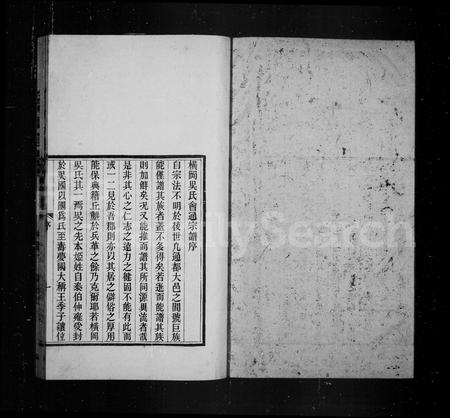 橫岡吳氏會通宗譜序
自宗法不明於後世凡通都大邑之間號巨族
能僅譜其族者蓋不多得矣若進而能譜其族
則加鮮矣況又能推而譜其所同源異流者哉
是非其心之仁志之遠力之健固不能有此而
或一二見於吾郡則亦以其居之僻俗之厚用
能保典籍丘壟於兵革之餘乃克爾耶若橫岡
吳氏其一焉吳之先本姬姓自泰伯仲雍受封
於吳國以國爲氏至壽夢國大稱王季子讓位
序
ilySearch